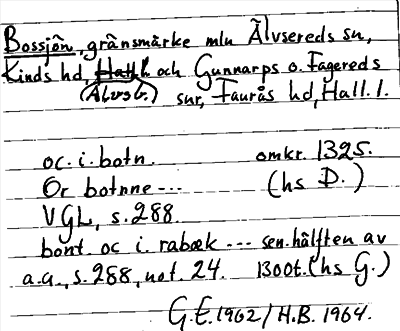 Bossjön, gränsmärke mln Älvsereds sn,
Kinds hd, Hall. och Gunnarps o. Fagereds
(Älvsb.) snr, Faurås hd, Hall. l.
oc. i. botn. omkr. 1325.
Or botnne --- (hs D.)
VGL, s. 288.
bont. oc i. rabæk --- sen. hälften av
a.a., s. 288, not. 24. 1300t. (hs G.)
G.E. 1962 / H.B. 1964.